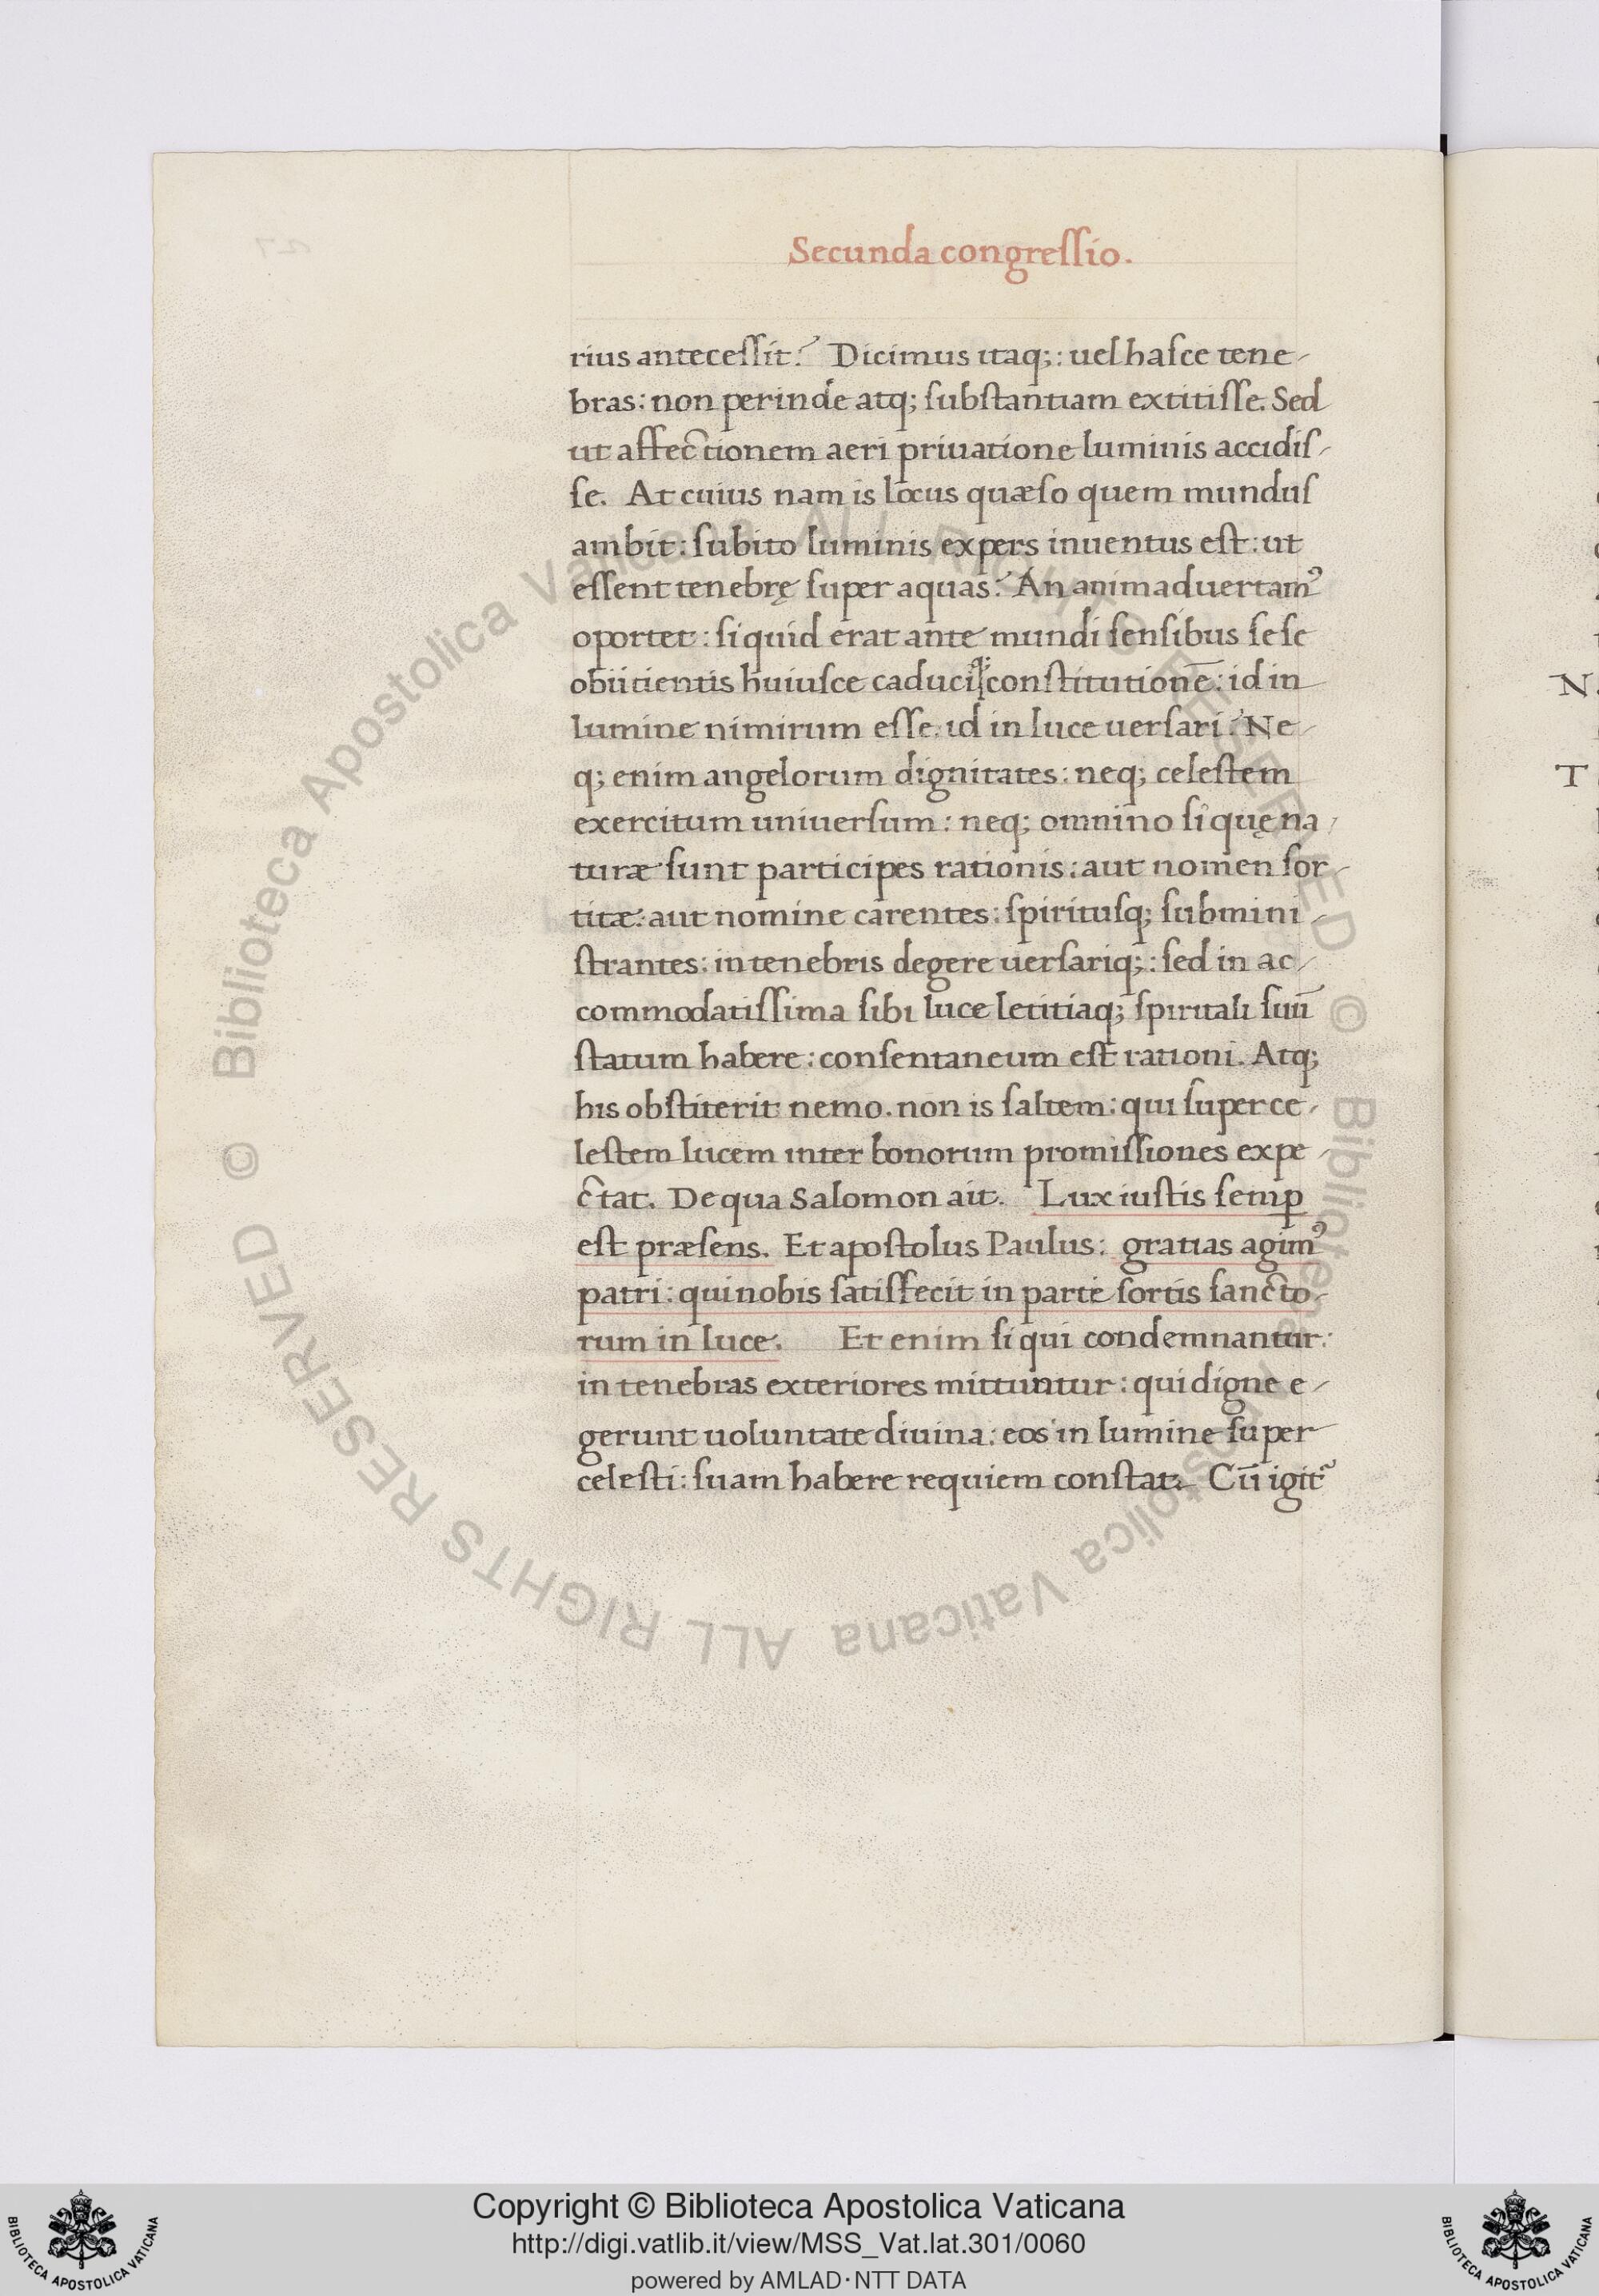 Secunda congreſſio.
rius anteceſſit? Dicimus itaq;: uel haſce tene-
bras: non perinde atq; ſubſtantiam extitiſſe. Sed
ut affectionem aeri priuatione luminis accidiſ-
ſe. At cuius nam is locus quæſo quem munduſ
ambit: ſubito luminis expers inuentus eſt: ut
eſſent tenebrę ſuper aquas? An animaduertamꝰ
oportet: ſi quid erat ante mundi ſenſibus ſeſe
obiicientis huiuſce caduciq; conſtitutionē: id in
lumine nimirum eſſe. id in luce uerſari? Ne-
q; enim angelorum dignitates: neq; celeſtem
exercitum uniuerſum: neq; omnino ſi quę na-
turæ ſunt participes rationis: aut nomen ſor-
titæ: aut nomine carentes: ſpirituſq; ſubmini-
ſtrantes: in tenebris degere uerſariq;: ſed in ac-
commodatiſſima ſibi luce letitiaq; ſpiritali ſuū
ſtatum habere: conſentaneum eſt rationi. Atq;
his obſtiterit nemo. non is ſaltem: qui ſuper ce-
leſtem lucem inter bonorum promiſſiones expe-
ctat. De qua Salomon ait. Lux iuſtis ſemꝑ
eſt præſens. Et apoſtolus Paulus: gratias agimꝰ
patri: qui nobis ſatiſfecit in parte ſortis ſancto-
rum in luce. Et enim ſi qui condemnantur:
in tenebras exteriores mittuntur: qui digne e-
gerunt uoluntate diuina: eos in lumine ſuper
celeſti: ſuam habere requiem conſtat. Cū igit᷑
N
T
© Biblioteca Apostolica Vaticana ALL RIGHTS RESERVED © Biblioteca Apostolica Vaticana ALL RIGHTS RESERVED
Copyright © Biblioteca Apostolica Vaticana
http://digi.vatlib.it/view/MSS_Vat.lat.301/0060
powered by AMLAD·NTT DATA
BIBLIOTECA APOSTOLICA VATICANA
BIBLIOTECA APOSTOLICA VATICANA